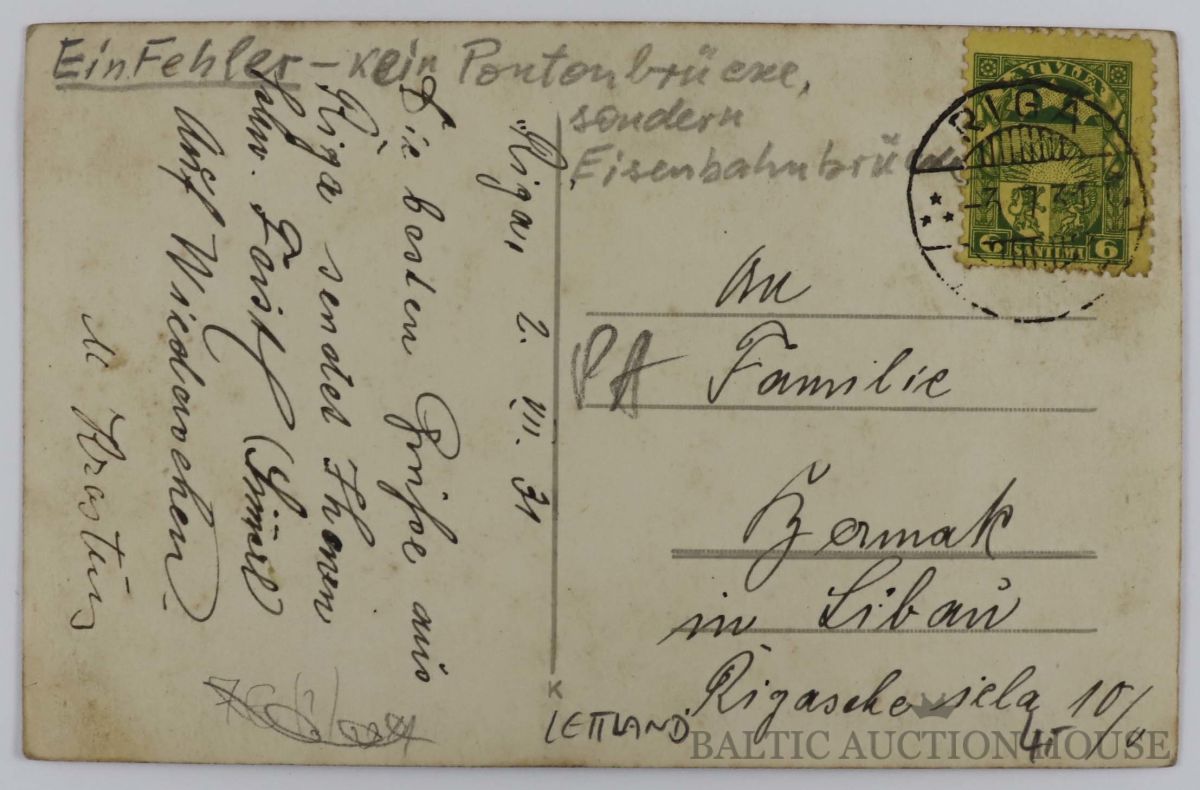 Ein Fehler – kein Pontonbrücke,
sondern
Eisenbahnbrücke
"Riga, 2. VII. 31
Die besten Grüße aus
Riga sendet Ihnen
Auf Wiedersehen
LATVIJA
RIGA
6 SANTIMI 6
An
PA Familie
in Libau
Rigasche iela 10/
45
K
LETTLAND
BALTIC AUCTION HOUSE